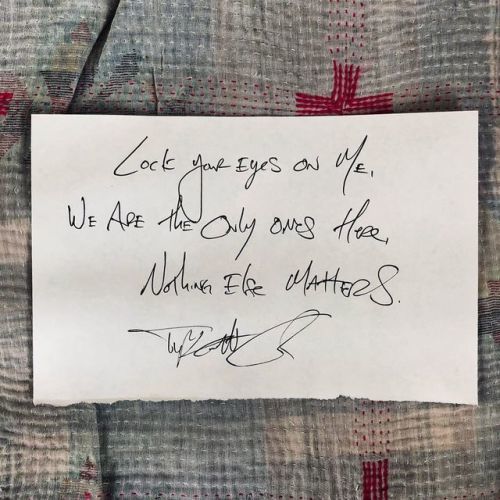 Lock your Eyes on Me,
We Are the Only ones Here,
Nothing Else Matters.